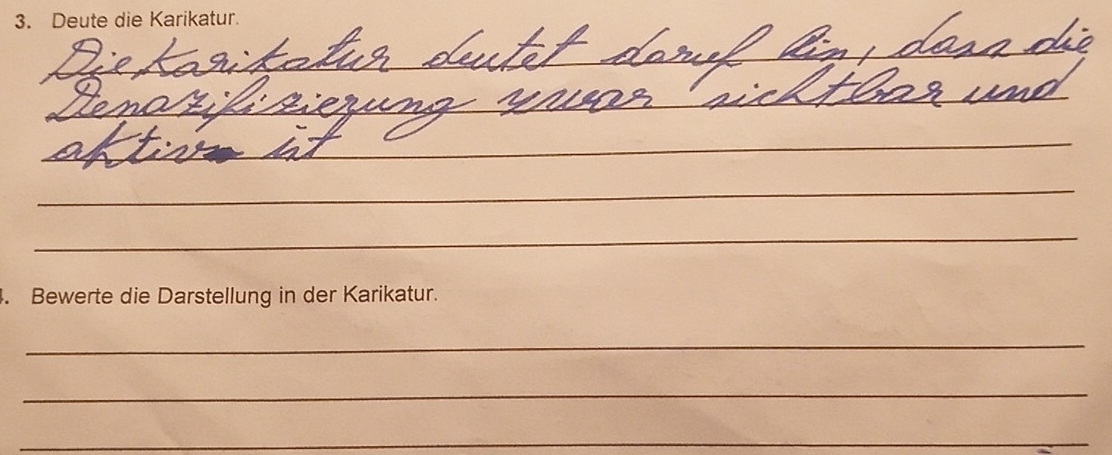 3. Deute die Karikatur.
Die Karikatur deutet daruf hin, dass die
Denazifizierung zwar sichtbar und
aktiv ist
. Bewerte die Darstellung in der Karikatur.